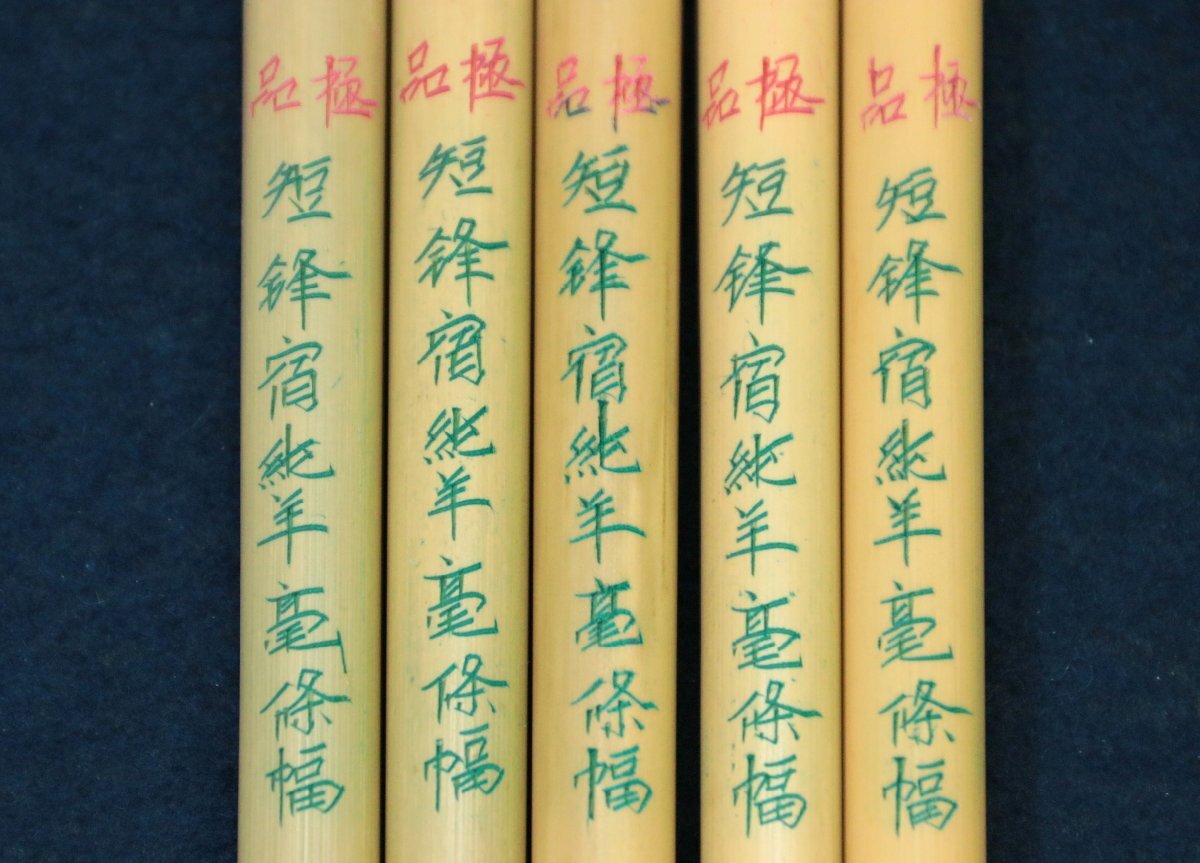 極品
短鋒宿純羊毫條幅
極品
短鋒宿純羊毫條幅
極品
短鋒宿純羊毫條幅
極品
短鋒宿純羊毫條幅
極品
短鋒宿純羊毫條幅